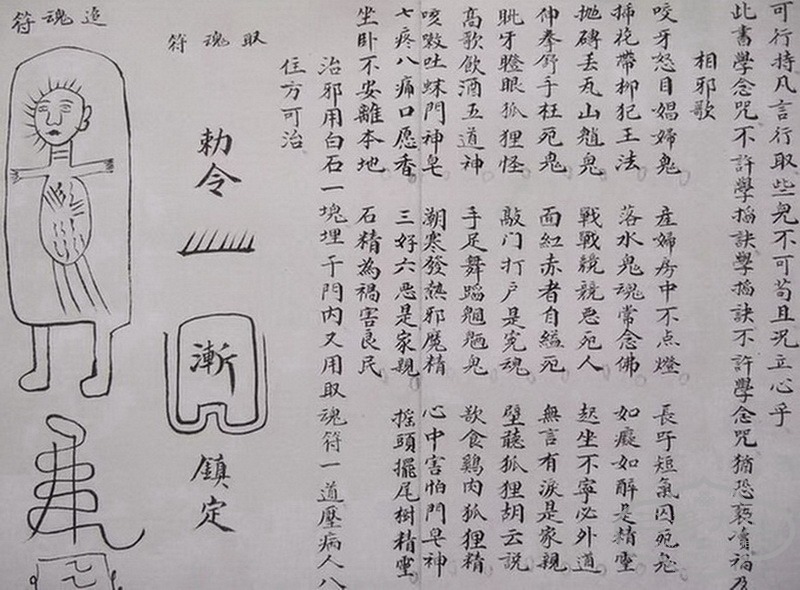 可行持凡言行取些鬼不可苟且况立心乎
此書學念咒不許學搯訣學搯訣不許學念咒猶恐褻凟福乃
相邪歌
咬牙怒目娼婦鬼 產婦房中不点燈 長吁短氣囚死鬼
插花帶柳犯王法 落水鬼魂常念佛 如癡如醉是精靈
拋磚丟瓦山魈鬼 戰戰競競惡死人 起坐不寧必外道
伸拳舒手枉死鬼 面紅赤者自縊死 無言有淚是家親
眺牙瞪眼狐狸怪 敲门打户是冤魂 壁聽狐狸胡云説
高歌飲酒五道神 手足舞蹈魍魎鬼 歆食鷄肉狐狸精
咳嗽吐蛛門神皂 潮寒發熱邪魔精 心中害怕門皂神
七疼八痛口愿香 三好六恶是家親 摇頭擺尾樹精靈
坐卧不安離本地 石精為禍害良民
治邪用白石一塊埋于門内又用取魂符一道壓病人八
住方可治
取魂符
勅令
漸
鎮定
追魂符